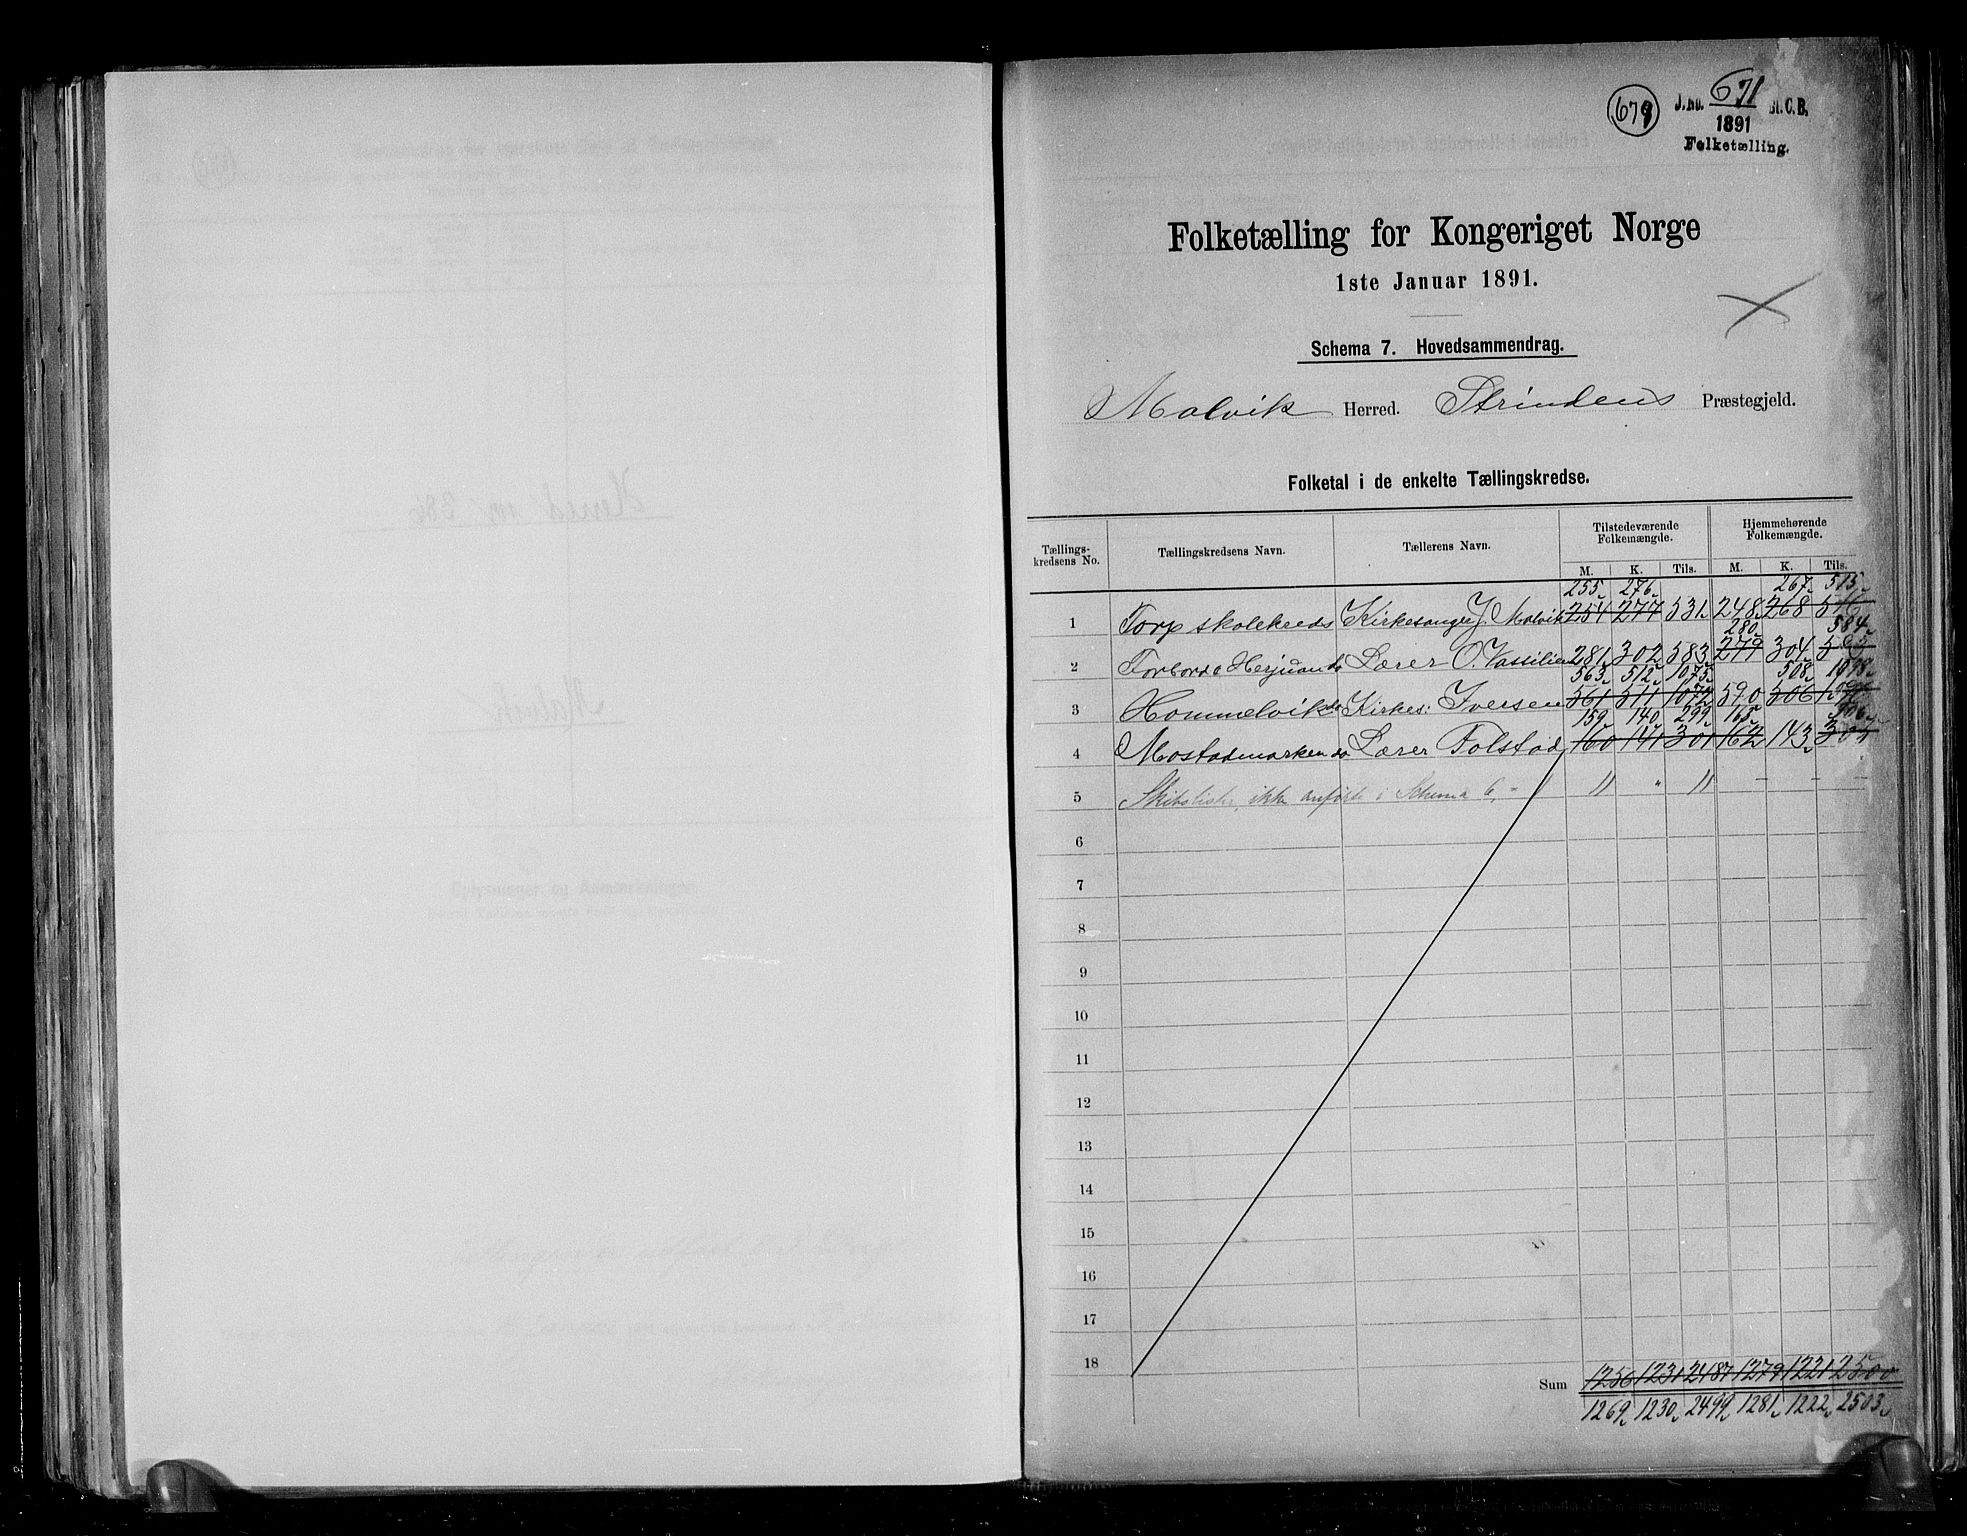 679
J.No. 671 St.C.B.
1891
Folketælling.
Folketælling for Kongeriget Norge
1ste Januar 1891.
Schema 7. Hovedsammendrag.
Malvik Herred. Strindens Præstegjeld.
Folketal i de enkelte Tællingskredse.
Tællings-kredsens No. Tællingskredsens Navn. Tællerens Navn. Tilstedeværende Folkemængde. Hjemmehørende Folkemængde.
M. K. Tils. M. K. Tils.
255 276 267 515
1 Torp skolekreds Kirkesanger J. Malvik 254 277 531 248 268 516
280 584
2 Forbord & Herjuan do Lærer O. Vassilien 281 302 583 279 304
563 512 1075 508 1098
3 Hommelvik do Kirkes: Iversen 561 511 1072 590 506
159 140 299 163 306
4 Mostadmarken do Lærer Folstad 160 141 301 162 143 305
5 Skibslister, ikke anførte i Schema 6, - 11 " 11 - - -
6
7
8
9
10
11
12
13
14
15
16
17
18
Sum 1256 1231 2487 1279 1221 2500
1269 1230 2499 1281 1222 2503
Herred
Malvik